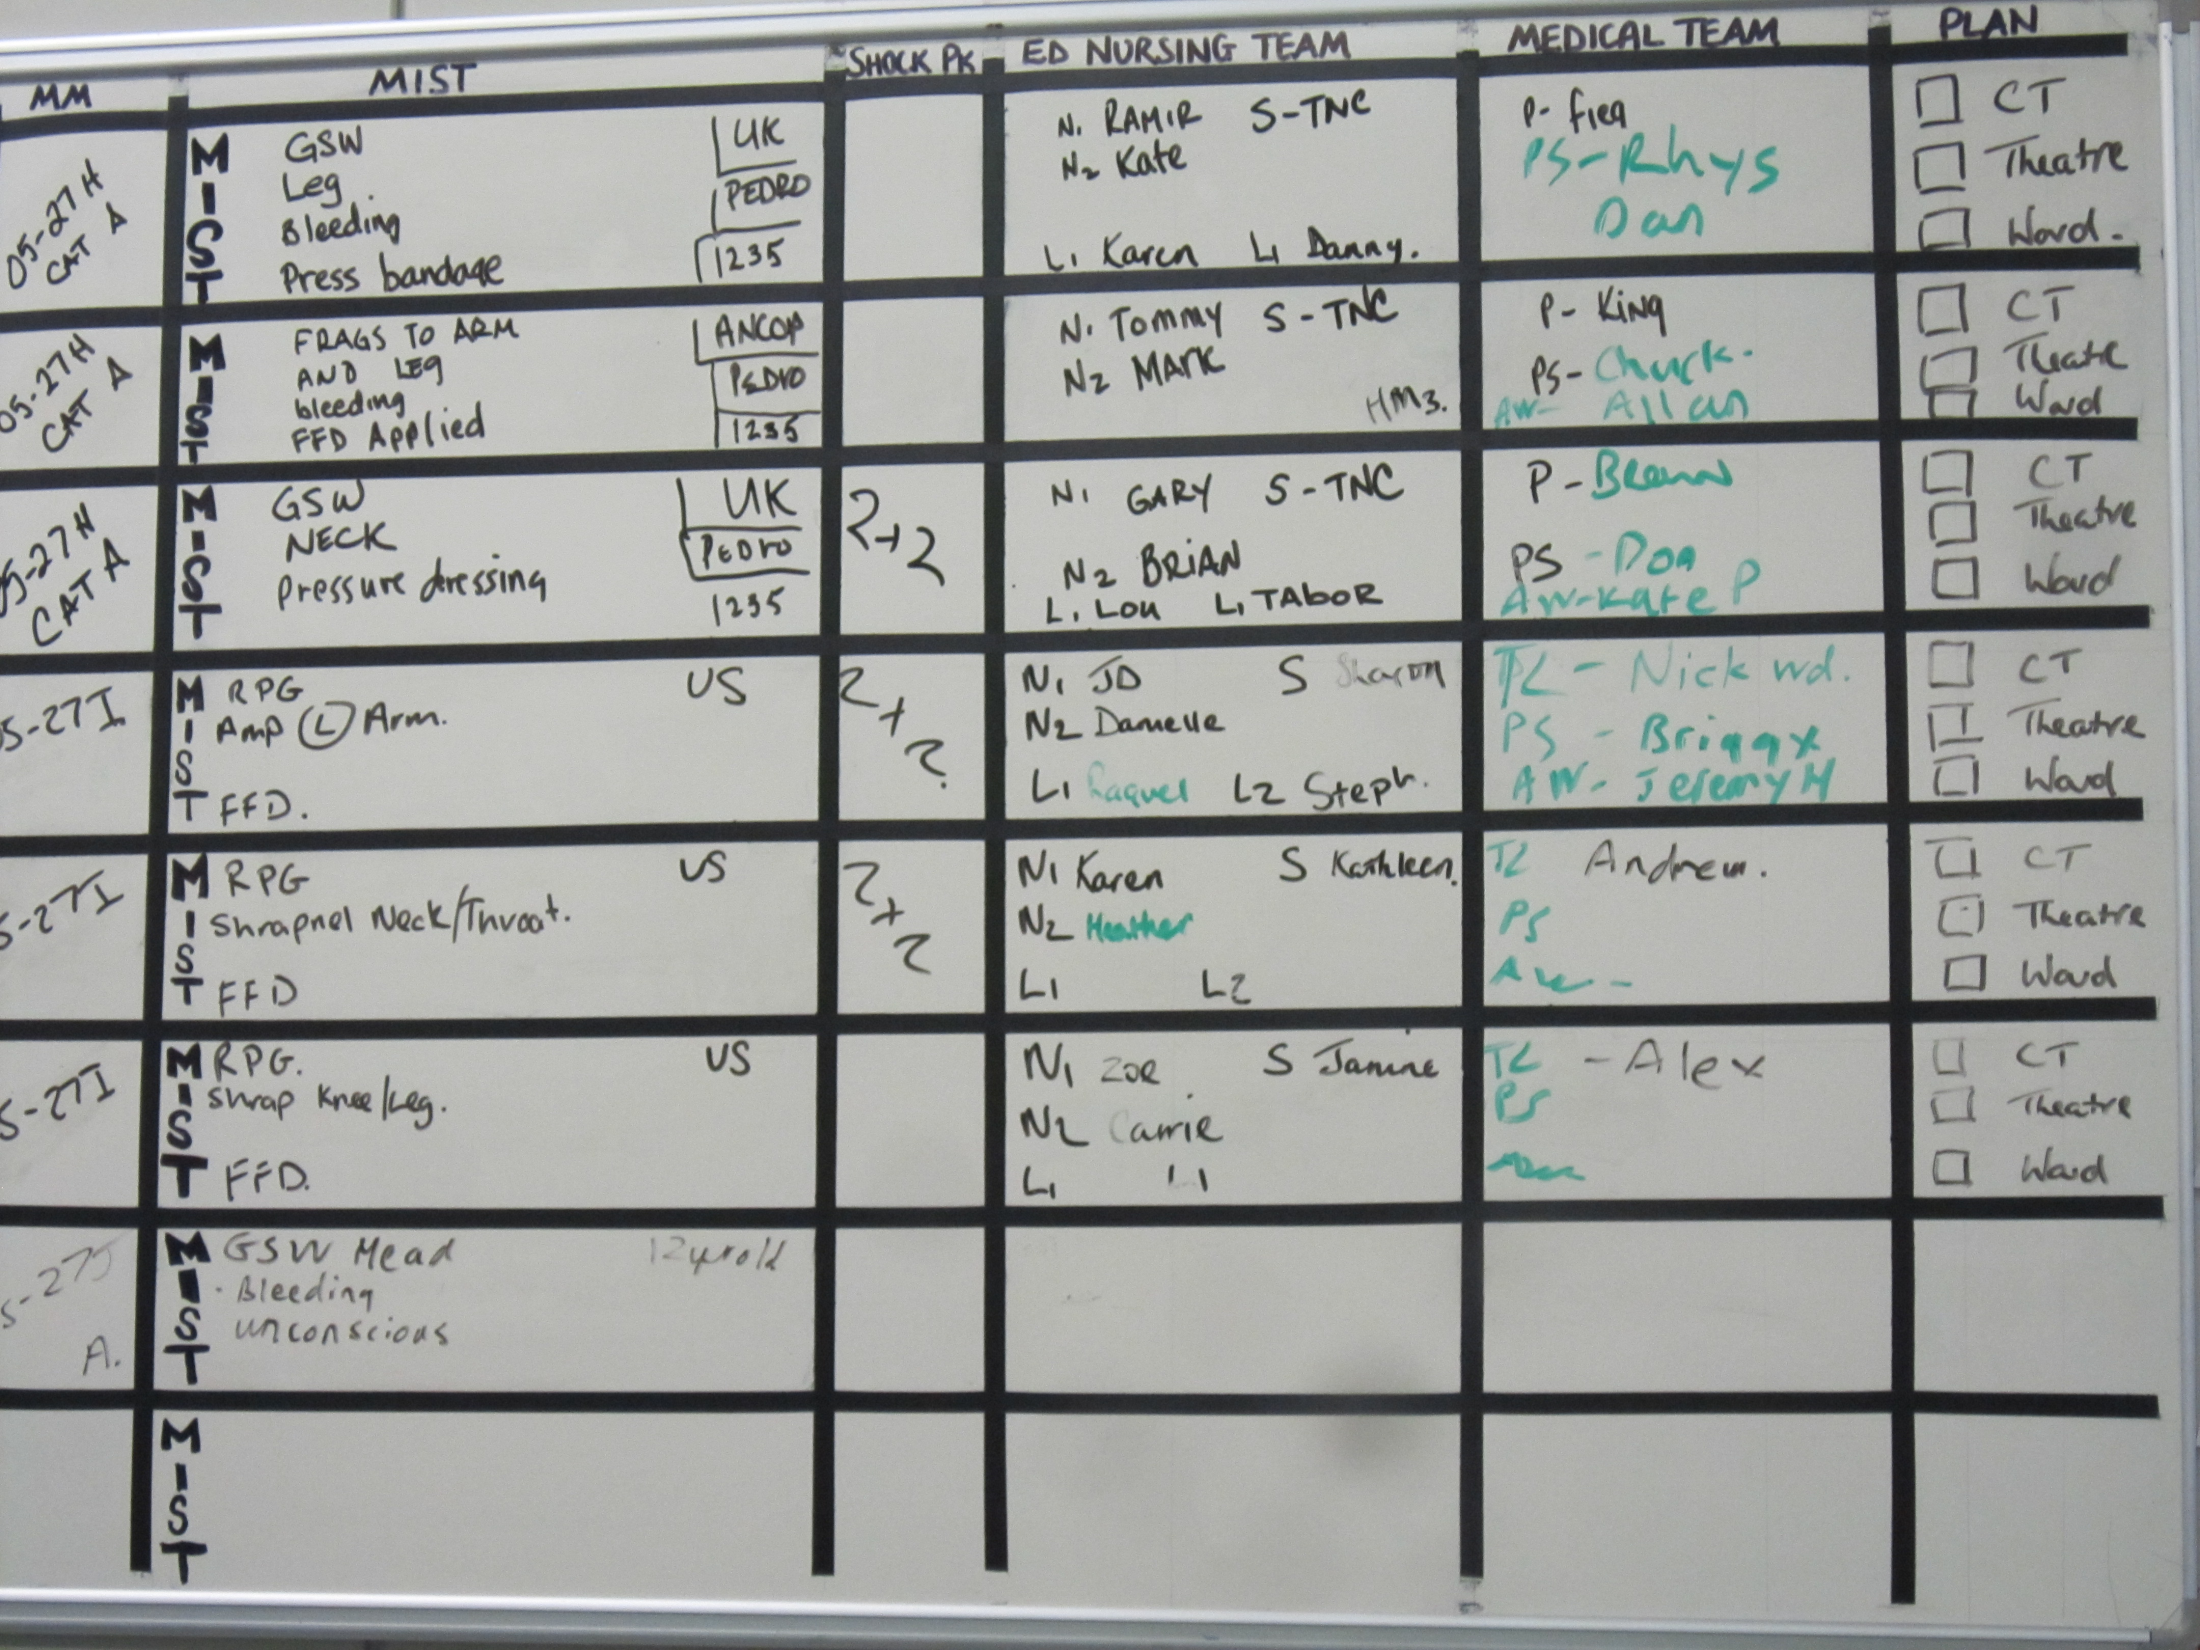 MM MIST SHOCK PK ED NURSING TEAM MEDICAL TEAM PLAN
05-27H
CAT A
M
I
S
T
GSW
Leg
Bleeding
Press bandage
UK
PEDRO
1235
N1 RAMIR S-TNC
N2 Kate
L1 Karen L1 Danny.
P-
PS-Rhys
Dan
CT
Theatre
Ward.
05-27H
CAT A
M
I
S
T
FRAGS TO ARM
AND LEG
bleeding
FFD Applied
ANCOP
PEDRO
1235
N1 Tommy S-TNC
N2 MARK
HM3.
P- King
PS- Chuck.
AW- Allan
CT
Theatre
Ward
05-27H
CAT A
M
I
S
T
GSW
NECK
Pressure dressing
UK
PEDRO
1235
2+2
N1 GARY S-TNC
N2 BRIAN
L1 Lou L1 TABOR
P-
PS -Don
AW-Kate P
CT
Theatre
Ward
05-27I
M
I
S
T
RPG
Amp (L) Arm.
FFD.
US
2+2
N1 JD S Sharon
N2 Danielle
L1 Raquel L2 Steph.
TL - Nick wd.
PS - Briggx
AW- Jeremy H
CT
Theatre
Ward
5-27I
M
I
S
T
RPG
Shrapnel Neck/Throat.
FFD
US
2+2
N1 Karen S Kathleen.
N2 Heather
L1 L2
TL Andrew.
PS
AW -
CT
Theatre
Ward
5-27I
M
I
S
T
RPG.
Shrap Knee/Leg.
FFD.
US
N1 Zoe S Janine
N2 Carrie
L1 L1
TL -Alex
PS
CT
Theatre
Ward
5-27J
A.
M
I
S
T
GSW Head
Bleeding
unconscious
12yrold
M
I
S
T